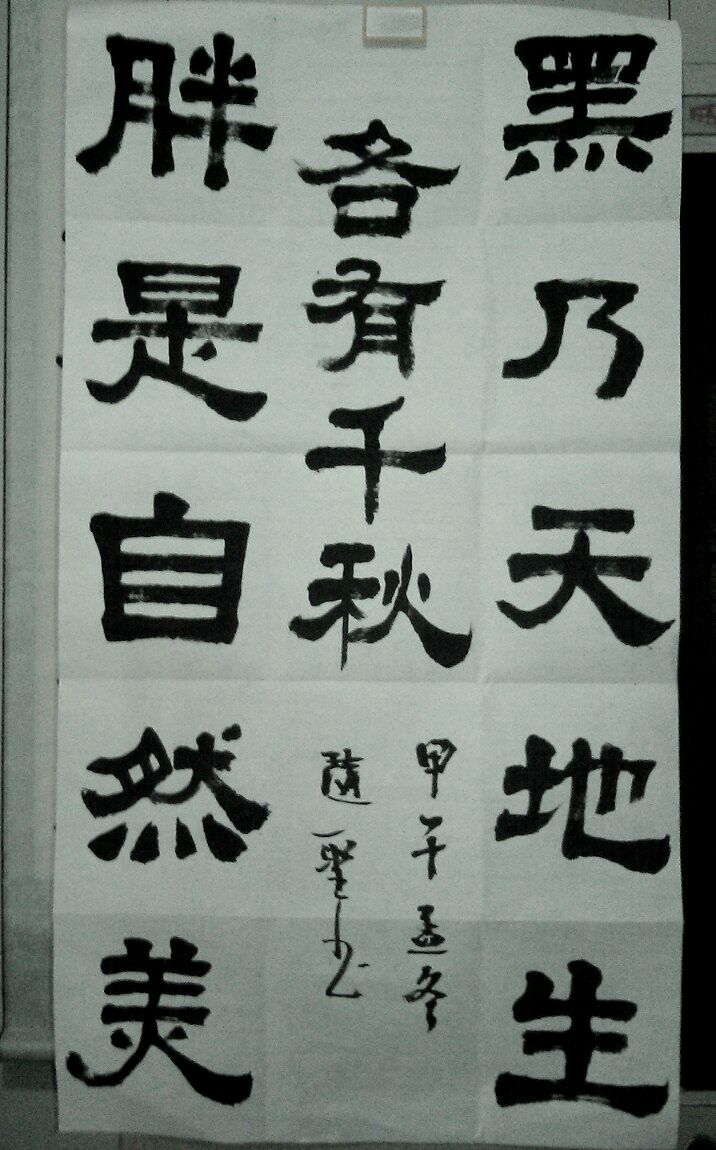 黑乃天地生
胖是自然美
各有千秋
甲午孟冬
隨 书